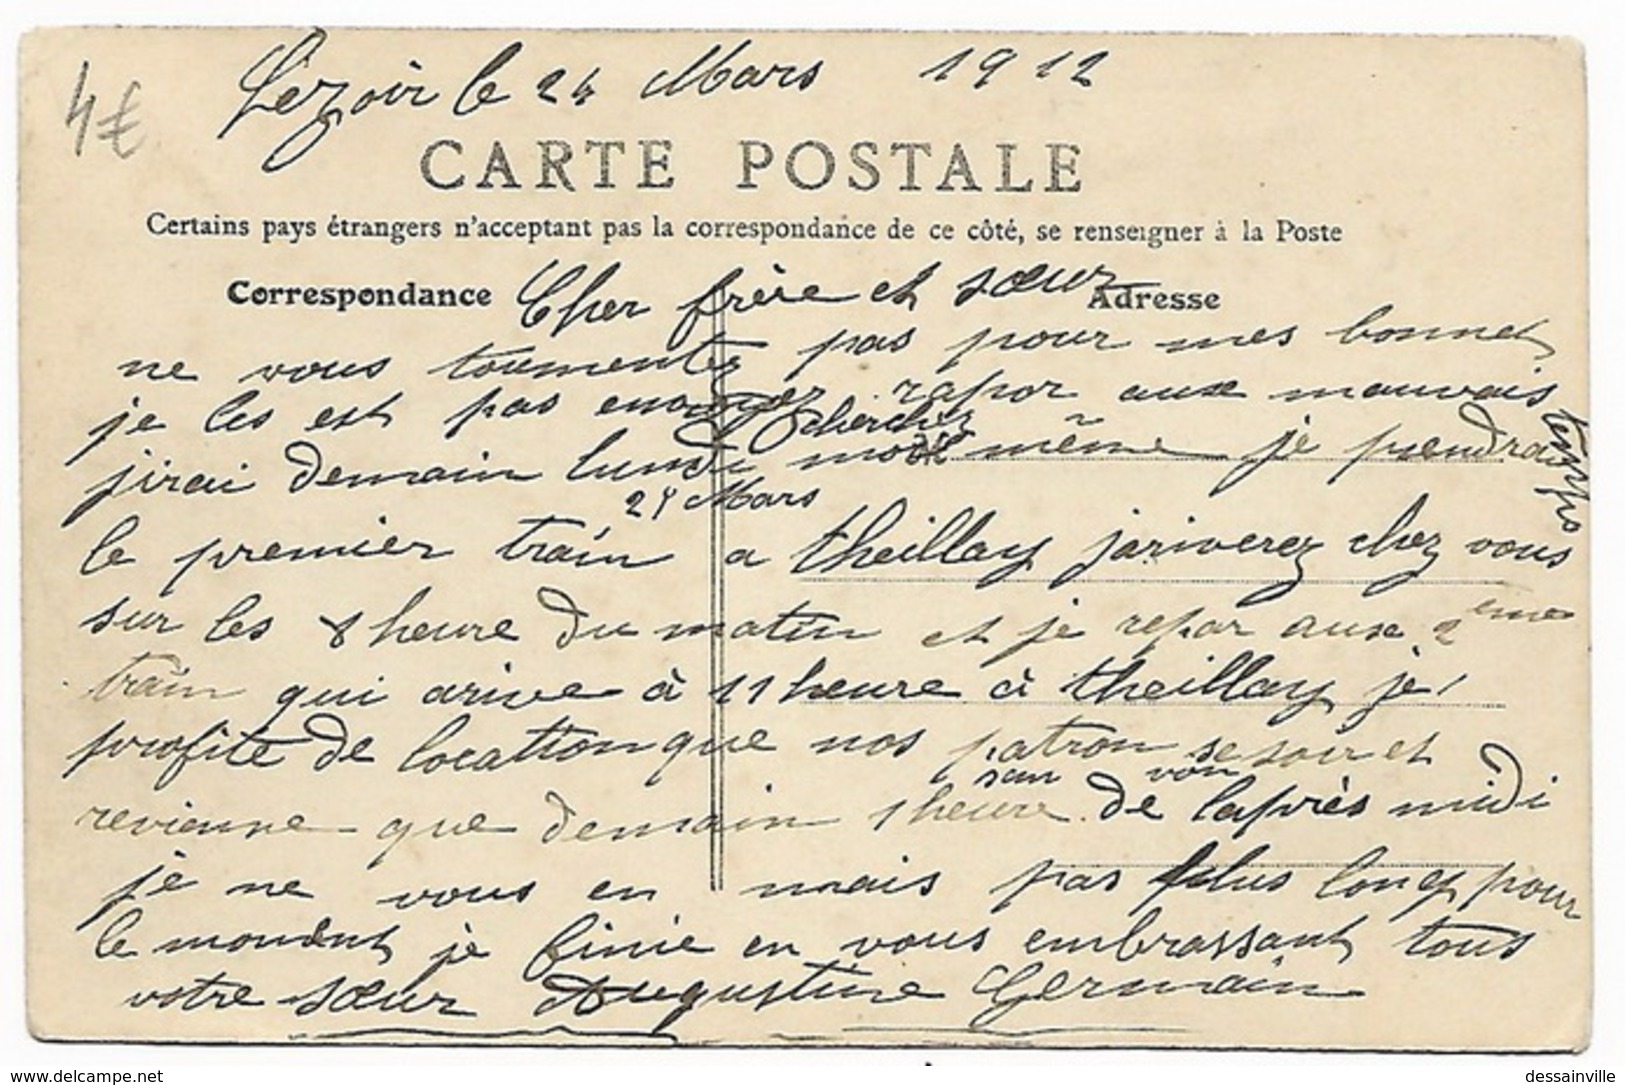 4€
Lezoir le 24 Mars 1912
CARTE POSTALE
Certains pays étrangers n'acceptant pas la correspondance de ce côté, se renseigner à la Poste
Correspondance Cher frère et sœur Adresse
ne vous tourmentez pas pour mes bonnet
je les est pas envoyez rapor aux mauvais temps
jirai demain lundi cherchez moi même je prendrai
25 Mars
le premier train a theillay jariverez chez vous
sur les 8 heure du matin et je repar aux 2eme
train qui arive à 11 heure à theillay je
profite de locattion que nos patron se soir et
san von
revienne que demain 1 heure de laprès midi
je ne vous en mais pas plus long pour
le moment je finie en vous embrassant tous
votre sœur Augustine Germain
www.delcampe.net
dessainville